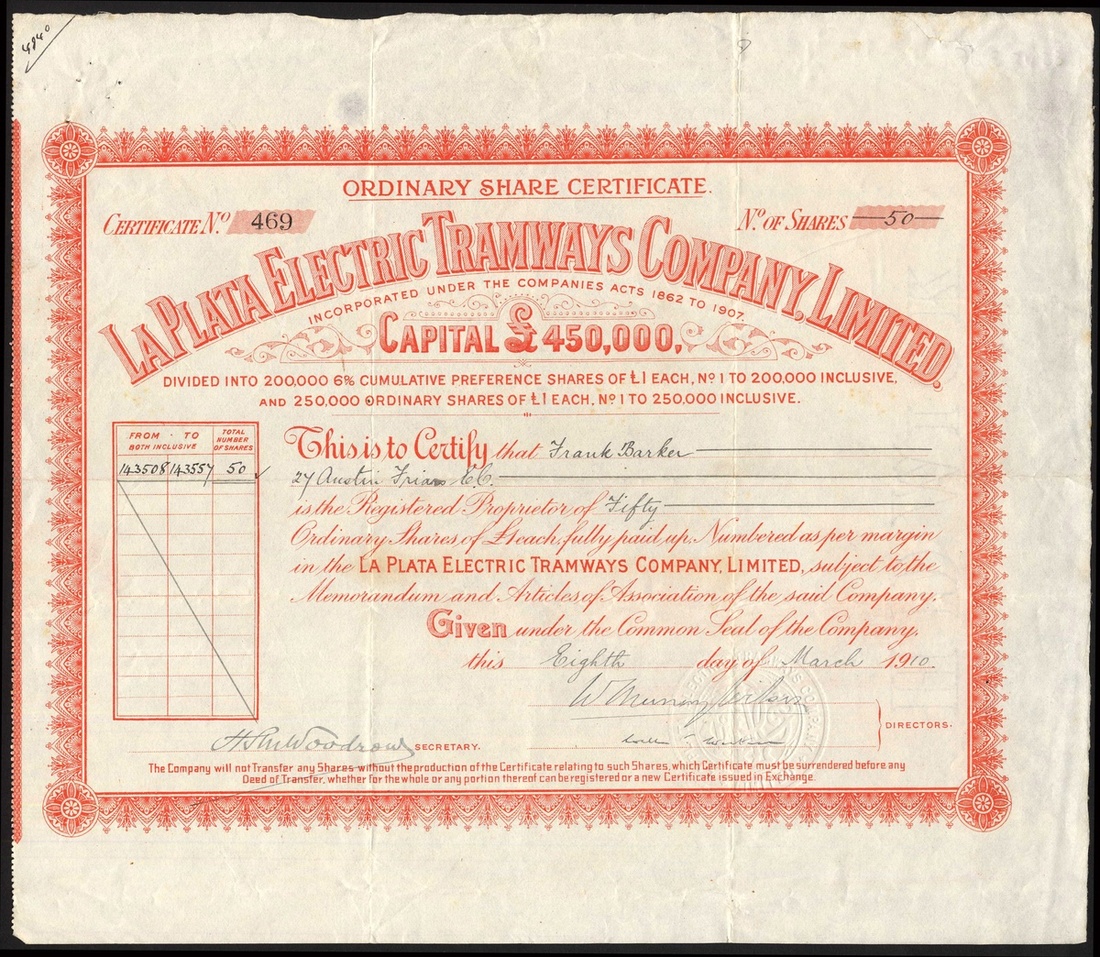 4940
ORDINARY SHARE CERTIFICATE.
CERTIFICATE No. 469
No. OF SHARES 50
LA PLATA ELECTRIC TRAMWAYS COMPANY, LIMITED.
INCORPORATED UNDER THE COMPANIES ACTS 1862 TO 1907.
CAPITAL £450,000,
DIVIDED INTO 200,000 6% CUMULATIVE PREFERENCE SHARES OF £1 EACH, No 1 TO 200,000 INCLUSIVE,
AND 250,000 ORDINARY SHARES OF £1 EACH, No 1 TO 250,000 INCLUSIVE.
FROM · TO
BOTH INCLUSIVE
TOTAL
NUMBER
OF SHARES
143508 143557 50
This is to Certify that Frank Barker
27 Austin Friars E.C.
is the Registered Proprietor of Fifty
Ordinary Shares of £1 each, fully paid up, Numbered as per margin
in the LA PLATA ELECTRIC TRAMWAYS COMPANY, LIMITED, subject to the
Memorandum and Articles of Association of the said Company.
Given under the Common Seal of the Company,
this Eighth day of March 1910.
DIRECTORS.
SECRETARY.
The Company will not Transfer any Shares without the production of the Certificate relating to such Shares, which Certificate must be surrendered before any
Deed of Transfer, whether for the whole or any portion thereof can be registered or a new Certificate issued in Exchange.